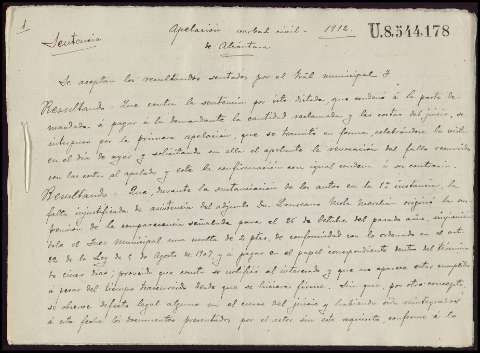 1
Sentencia
Apelación verbal civil - 1912.
de Alcántara
U.8.544.178
Se aceptan los resultandos sentados por el Trbl municipal y
Resultando - Que contra la sentencia por éste dictada, que condenó á la parte de
mandada á pagar á la demandante la cantidad reclamada y las costas del juicio, se
interpuso por la primera apelación, que se tramitó en forma, celebrándose la vista
en el día de ayer y solicitando en ella el apelante la revocación del fallo recurrido
con las costas al apelado y este la confirmación con igual condena á su contrario.
Resultando - Que, durante la sustanciación de los autos en la 1ª instancia, la
falta injustificada de asistencia del adjunto Dn. Laureano originó la sus
pensión de la comparecencia señalada para el 26 de Octubre del pasado año, imponién
dole el Juez Municipal una multa de 5 ptas, de conformidad con lo ordenado en el art.
22 de la Ley de 5 de Agosto de 1907, y a pagar en el papel correspondiente dentro del término
de cinco días; proveído que consta se notificó al interesado y que no aparece estar cumplido
á pesar del tiempo transcurrido desde que se hiciera firme. Sin que, por otro concepto,
se observe defecto legal alguno en el curso del juicio y habiendo sido reintegrados
á esta fecha los documentos presentados por el actor sin este requisito, conforme á lo